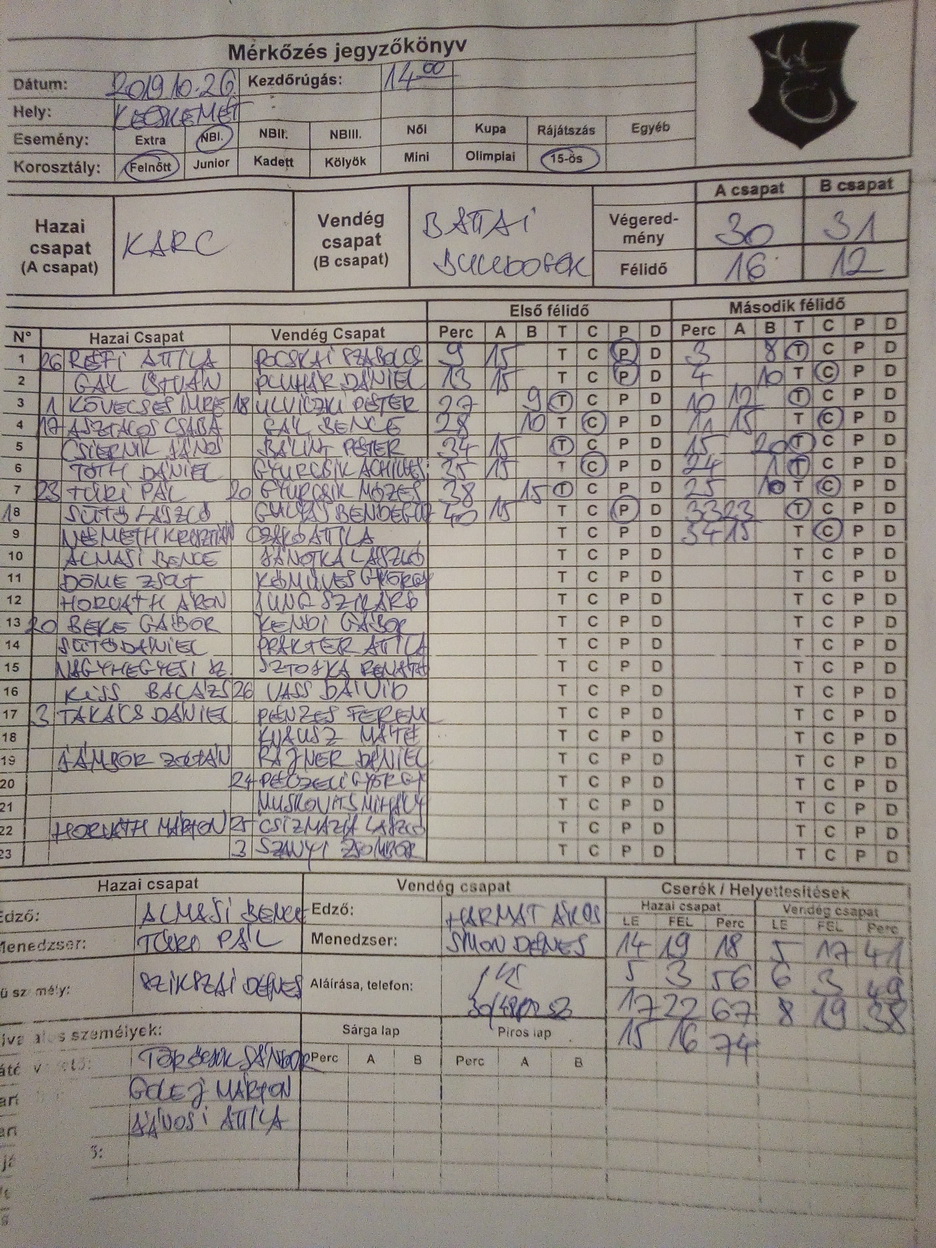 Mérkőzés jegyzőkönyv
Dátum: 2019.10.26. Kezdőrúgás: 14 00
Hely: KECSKEMÉT
Esemény: Extra NBI. NBII. NBIII. Női Kupa Rájátszás Egyéb
Korosztály: Felnőtt Junior Kadett Kölyök Mini Olimpiai 15-ös
Hazai csapat (A csapat) KARC Vendég csapat (B csapat) BATTAI BULLDOGOK
A csapat B csapat
Végeredmény 30 31
Félidő 16 12
Első félidő Második félidő
N° Hazai Csapat Vendég Csapat Perc A B T C P D Perc A B T C P D
1 26 RÉFI ATTILA POCSKAI SZABOLCS 9 15 T C P D 3 8 T C P D
2 GÁL ISTVÁN PLUHÁR DÁNIEL 13 15 T C P D 4 10 T C P D
3 1 KÖVECSES IMRE 18 ULVICZKI PÉTER 27 9 T C P D 10 12 T C P D
4 17 ASZTALOS CSABA GÁL BENCE 28 10 T C P D 11 15 T C P D
5 CSIERNIK JÁNOS BÁLINT PÉTER 34 15 T C P D 15 20 T C P D
6 TÓTH DÁNIEL GYURCSIK ACHILLES 35 15 T C P D 24 1 T C P D
7 23 TÚRI PÁL 20 GYURCSIK MÓZES 38 15 T C P D 25 10 T C P D
18 SÜTŐ LÁSZLÓ GULYÁS BENDEGÚZ 40 15 T C P D 33 23 T C P D
9 NÉMETH KRISZTIÁN CZAKÓ ATTILA T C P D 34 15 T C P D
10 ALMASI BENCE JÁNOTKA LÁSZLÓ T C P D T C P D
11 DÖME ZSOLT KŐMŰVES GYÖRGY T C P D T C P D
12 HORVÁTH ÁRON JUNG SZILÁRD T C P D T C P D
13 20 BEKE GÁBOR KENDI GÁBOR T C P D T C P D
14 SÜTŐ DÁNIEL PRAKTER ATTILA T C P D T C P D
15 NAGYHEGYESI SZ. SZTOJKA RENÁTÓ T C P D T C P D
16 KISS BALÁZS 26 VASS DÁVID T C P D T C P D
17 3 TAKÁCS DÁNIEL PÉNZES FERENC T C P D T C P D
18 KNAUSZ MÁTÉ T C P D T C P D
19 JÁMBOR ZOLTÁN RAJNER DÁNIEL T C P D T C P D
20 24 PECZELI GYÖRGY T C P D T C P D
21 MUSKOVITS MIHÁLY T C P D T C P D
22 HORVÁTH MÁRTON 25 CSIZMAZIA LÁSZLÓ T C P D T C P D
23 3 SZANYI ZSOMBOR T C P D T C P D
Hazai csapat Vendég csapat Cserék / Helyettesítések
Hazai csapat Vendég csapat
LE FEL Perc LE FEL Perc
Edző: ALMASI BENCE Edző: HARMAT ÁKOS
Menedzser: TÚRI PÁL Menedzser: SIMON DÉNES 14 19 18 5 17 41
SZIKSZAI DÉNES Aláírása, telefon: 5 3 56 6 3 49
17 22 67 8 19 38
személyek: Sárga lap Piros lap 15 16 74
TÖRÖCSIK SÁNDOR Perc A B Perc A B
GOLEJ MÁRTON
JÁNOSI ATTILA